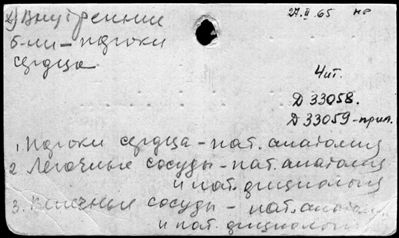 2) Внутренние
27.II 65 нр
б-ни - пороки
сердца
Чит.
Д 33058.
Д 33059-прил.
1. Пороки сердца - пат. анатомия
2. Легочные сосуды - пат. анатомия
и пат. физиология
3. сосуды - пат. анатом
и пат. физиология